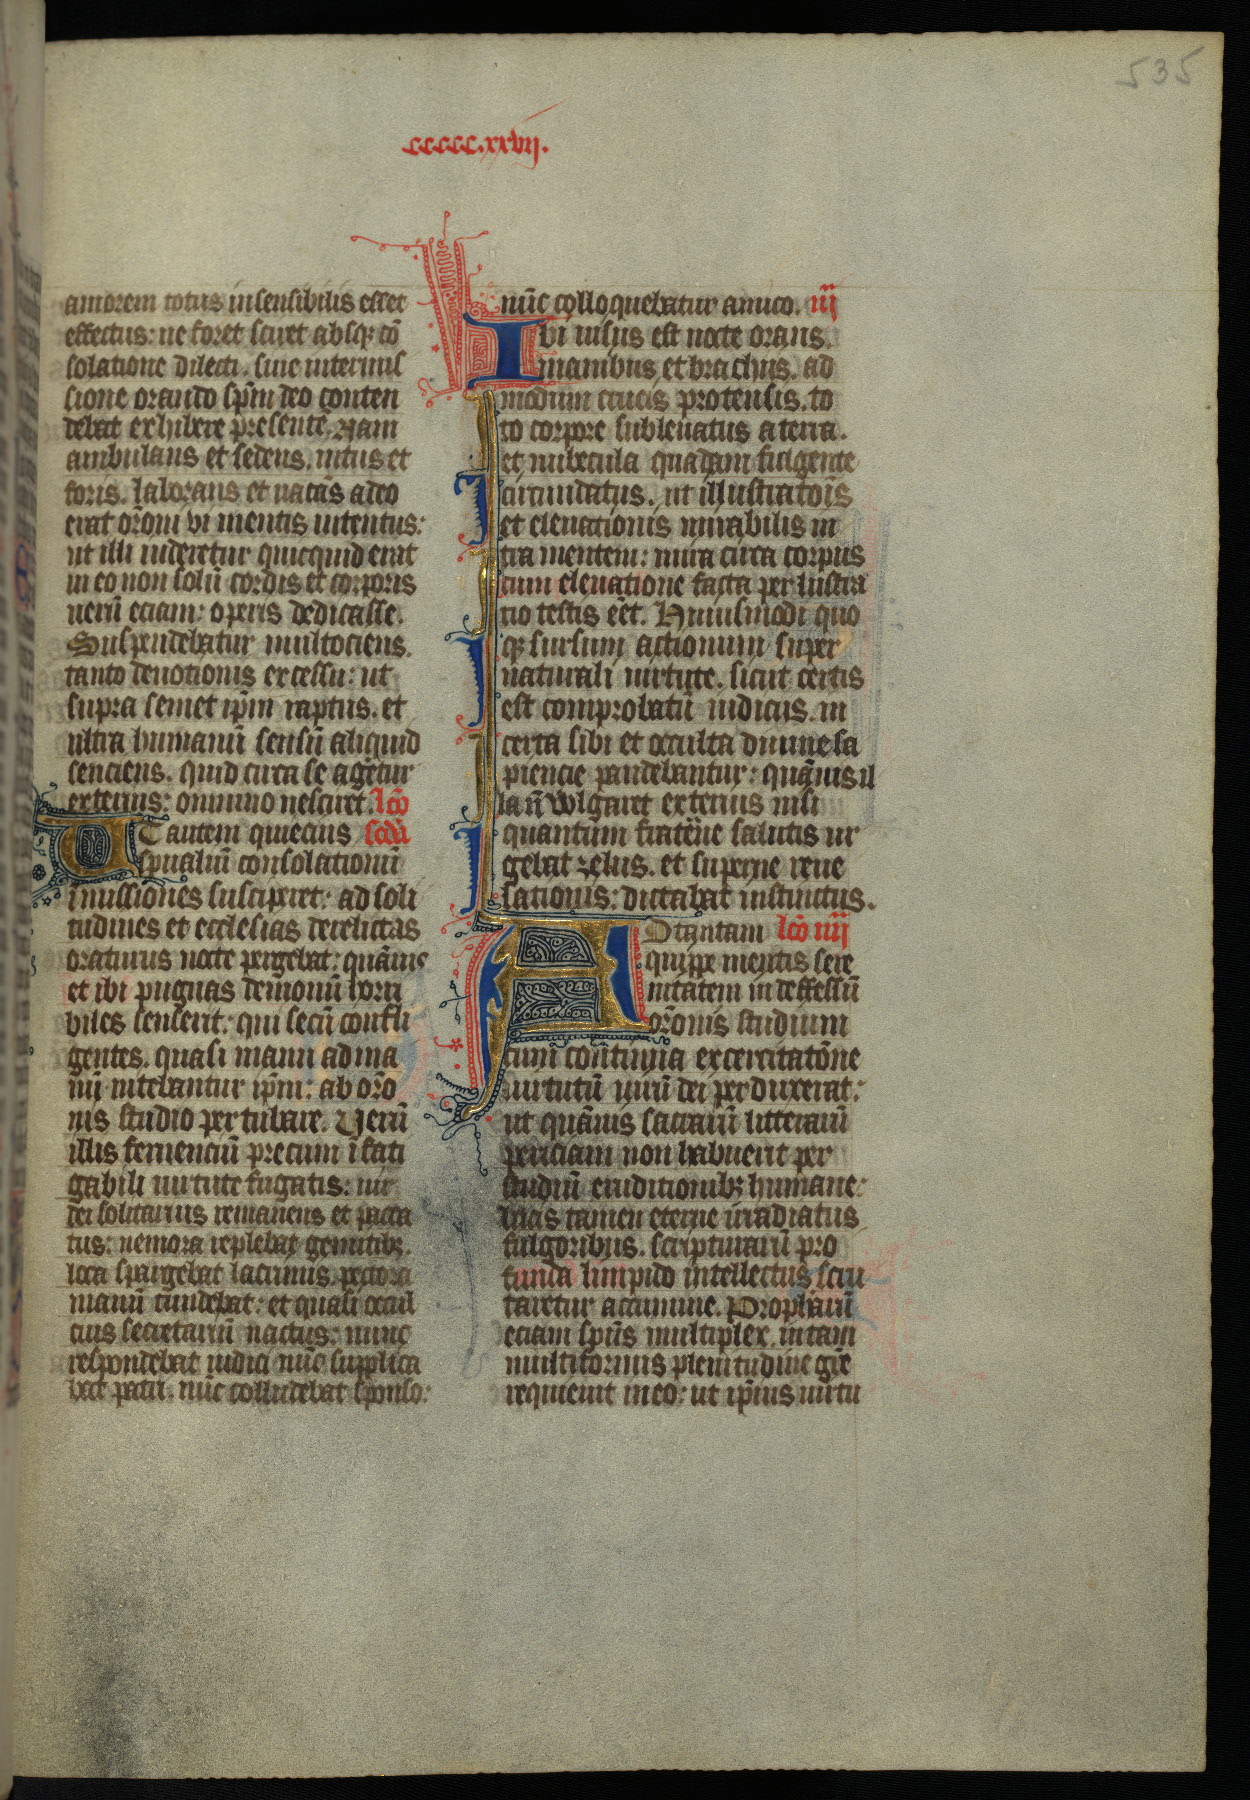 535
ccccc.xxvij.
amorem totus insensibilis esset
effectus: ne foret scilicet absq; cō
solatione dilecti. sine intermis
sione orando sp̄m deo conten
debat exhibere presentē. Nam
ambulans et sedens, intus et
foris. laborans et uacās adeo
erat or̄oni vi mentis intentus:
ut illi uideretur quicquid erat
in eo non solū cordis et corporis
uerū eciam: operis dedicasse.
Suspendebatur multociens.
tanto deuotionis excessu: ut
supra semet ip̄m raptus. et
ultra humanū sensū aliquid
senciens. quid circa se agētur
exterius: omnino nesciret. lc̄o
UT autem quiecius scd̄a
sp̄ualiū consolationū
inmissiones susciperet: ad soli
tudines et ecclesias derelictas
oraturus nocte pergebat: quāuis
et ibi pugnas demonū horri
biles senserit: qui secū confli
gentes. quasi manu ad ma
nū nitebantur ip̄m: ab or̄o
nis studio perturbare. Uerū
illis ferueneciū precum ī fati
gabili uirtute fugatis: uir
dei solitarius remanens et pacca
tus: nemora replebat gemitib;.
loca spargebat lacrimis. pectora
manū tundebat: et quasi occul
cius secretariū nactus: nunc
respondebat iudici nūc supplica
bat patri. nūc colludebat sponso:
nūc colloquebatur amico. iij
Ibi uisus est nocte orans.
manibus et brachiis. ad
modum crucis protensis. to
to corpore subleuatus a terra.
et nubecula quadam fulgente
circūdatus. ut illustratōis
et eleuationis mirabilis in
tra mentem: mira circa corpus
cum eleuatione facta perlustra
tio testis eēt. Huiusmodi quo
q; sursum actionum super
naturali uirtute. sicut certis
est comprobatū indicijs. in
certa sibi et occulta diuine sa
piencie pandebantur: quāuis il
la n̄ wlgaret exterius nisi
quantum fraterne salutis ur
gebat zelus. et superne reue
lationis: dictabat instinctus.
AD tantam lc̄o iiij
quippe mentis sere
nitatem indeffessū
or̄onis studium
cum continua excercitatōne
uirtutū uirū dei perduxerat:
ut quāuis sacrarū litterarū
periciam non habuerit per
studiū eruditionib; humane:
lucis tamen eterne irradiatus
fulgoribus. scripturarū pro
funda limpido intellectus scru
taretur accumine. Proph̄arū
eciam sp̄us multiplex. in tam
multiformis plenitudine gr̄e
requieuit in eo: ut ip̄ius uirtu